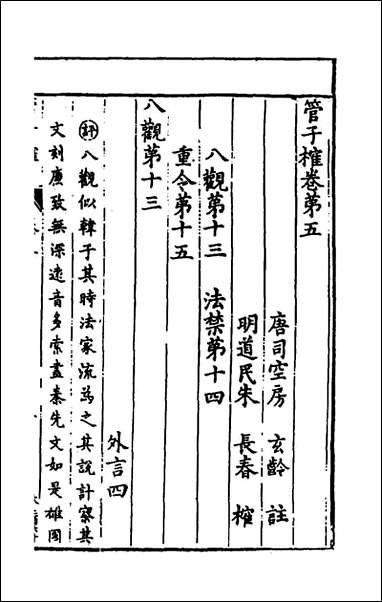 管子榷卷第五
唐司空房 玄齡 註
明道民朱 長春 榷
八觀第十三 法禁第十四
重令第十五
八觀第十三
外言四
評八觀似韓子其時法家流爲之其說計察其
文刻廉致無深遠音多索盡秦先文如是雄國